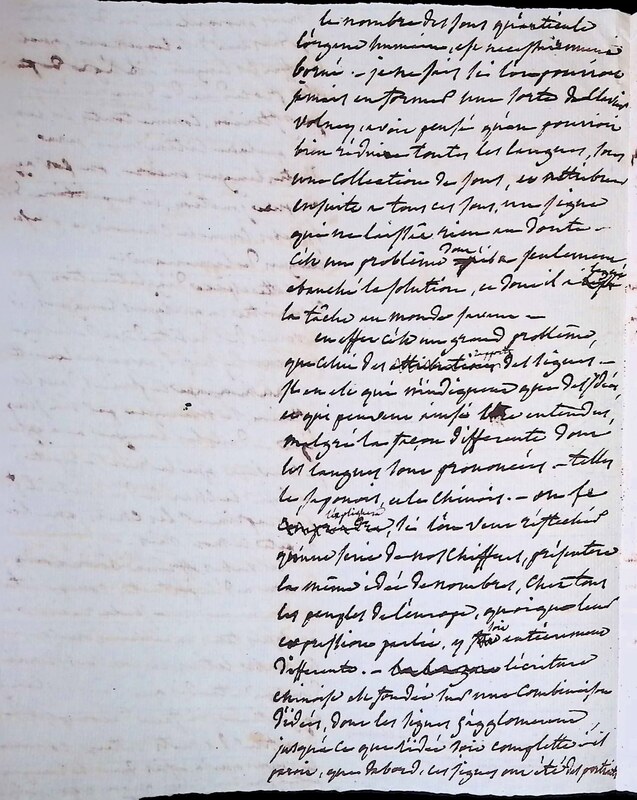 le nombre des sons qu'articule
l'organe humain, est necessairement
borné. - je ne sais si l'on pourroit
jamais en former une sorte
volney, avoit pensé qu'on pourroit
bien réduire toutes les langues, sous
une collection de sons, et attribuer
ensuite a tous ces sons, un signe
qui ne laissât rien au doute -
c'est un problême dont il a seulement
ébauché la solution, et dont il a
la tâche au monde savant -
en effet c'est un grand problême,
que celui des des signes -
il en est qui n'indiquent que des idées,
et qui peuvent ainsi être entendus,
malgré la façon differente dont
les langues sont prononcées - telles
le japonois, et le chinois. - on se
l'explique, si l'on veut réflechir
qu'une serie de nos chiffres, présentera
la même idée de nombres, chez tous
les peuples de l'europe, quoique leur
expression parlée, y soit entièrement
differente. - l'écriture
chinoise est fondée sur une combinaison
d'idées, dont les signes s'agglomerent
jusqu'a ce que l'idée soit complette - il
paroit, que d'abord, ces signes ont été des portraits